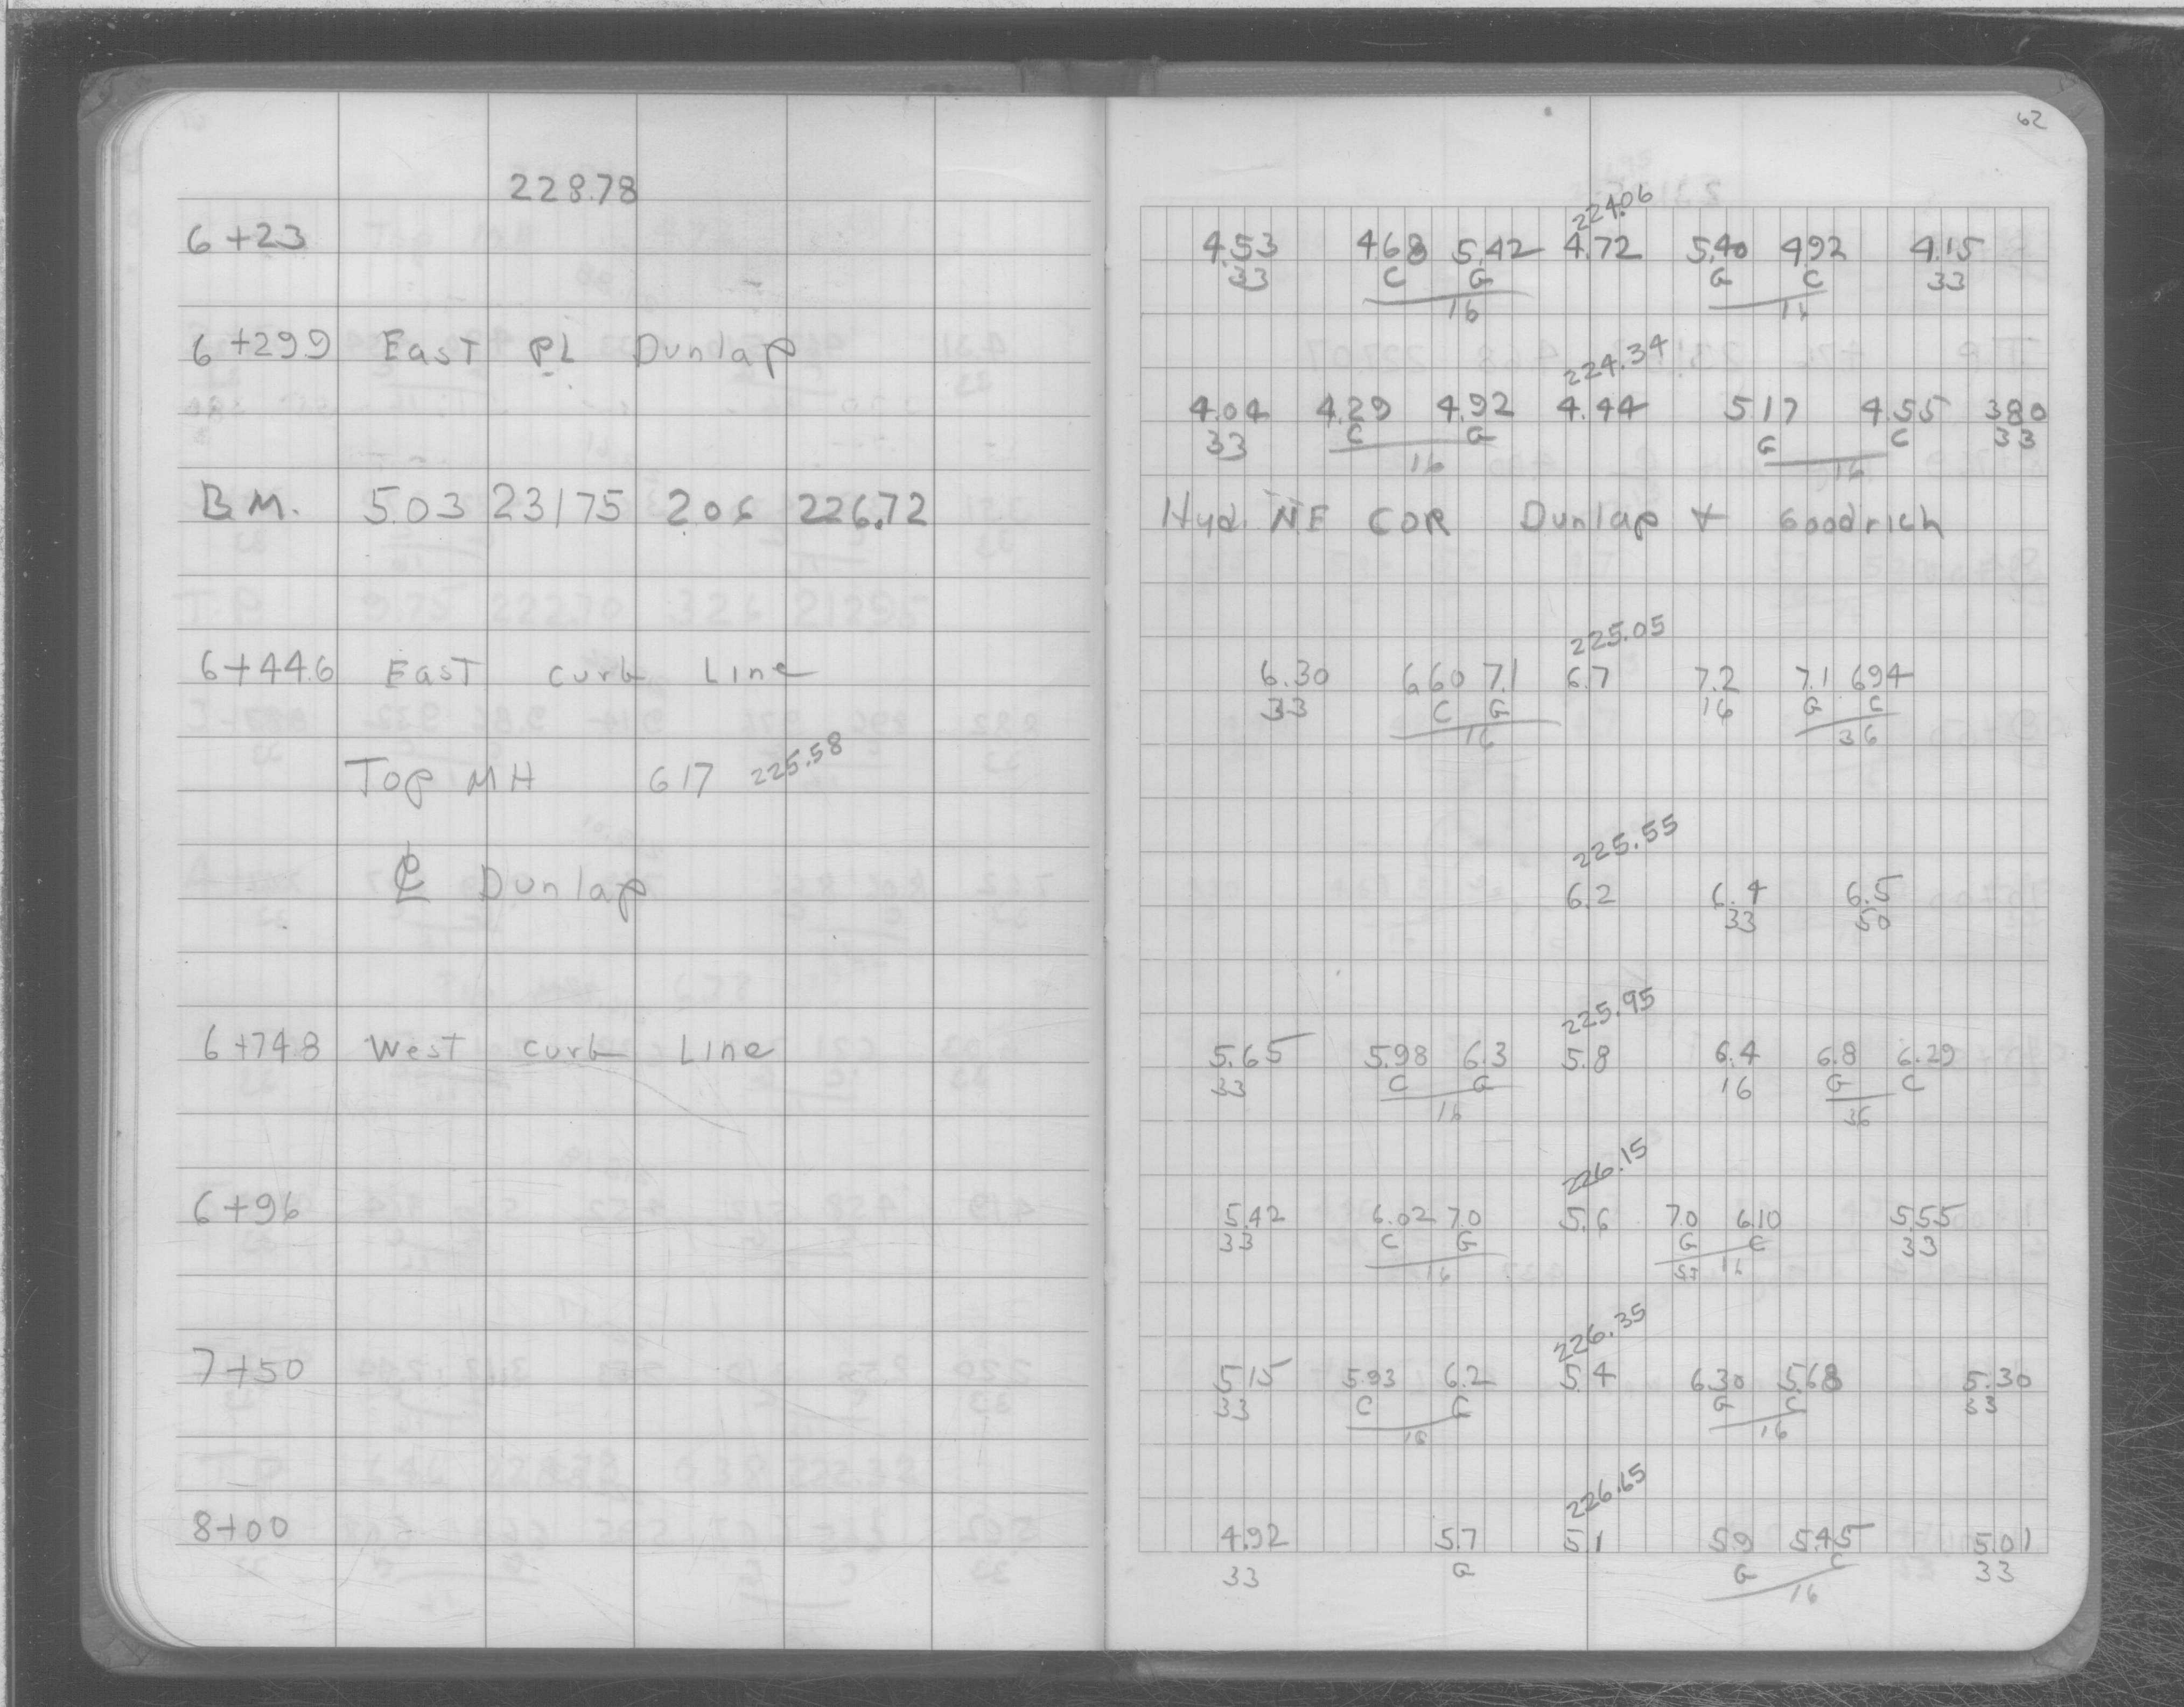 62
228.78
224.06
6+23 4.53 4.68 5.42 4.72 5.40 4.92 4.15
33 C G G C 33
16 16
6+299 East PL Dunlap
224.34
4.04 4.29 4.92 4.44 517 4.55 380
33 C G G C 33
16 16
B.M. 5.03 23175 2.06 226.72 Hyd. NE COR Dunlap + Goodrich
225.05
6+44.6 East curb Line 6.30 660 7.1 6.7 7.2 7.1 694
33 C G 16 G C
16 36
Top MH 617 225.58
225.55
℄ Dunlap 6.2 6.4 6.5
33 50
225.95
6+74.8 West curb Line 5.65 5.98 6.3 5.8 6.4 6.8 6.29
33 C G 16 G C
16 36
226.15
6+96 5.42 6.02 7.0 5.6 7.0 6.10 5.55
33 C G G C 33
16 16
226.35
7+50 5.15 5.93 6.2 5.4 6.30 5.68 5.30
33 C G G C 33
16 16
226.65
8+00 4.92 5.7 51 59 5.45 5.01
33 G G C 33
16